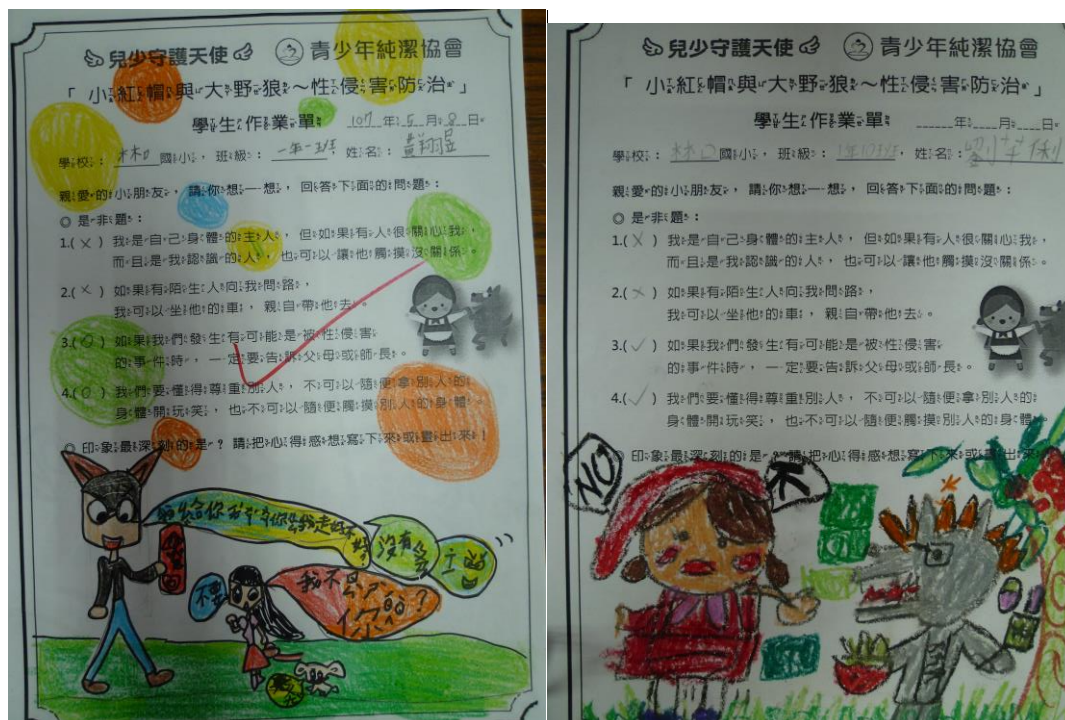 兒少守護天使 青少年純潔協會
「小紅帽與大野狼～性侵害防治」
學生作業單 107年5月8日
學校: 林口國小, 班級: 一年一班 姓名:
親愛的小朋友, 請你想一想, 回答下面的問題:
◎是非題:
1.(×) 我是自己身體的主人, 但如果有人很關心我,
而且是我認識的人, 也可以讓他觸摸沒關係。
2.(×) 如果有陌生人向我問路,
我可以坐他的車, 親自帶他去。
3.(○) 如果我們發生有可能是被性侵害
的事件時, 一定要告訴父母或師長。
4.(○) 我們要懂得尊重別人, 不可以隨便拿別人的
身體開玩笑, 也不可以隨便觸摸別人的身體。
◎印象最深刻的是? 請把心得感想寫下來或畫出來!
沒有
不要
兒少守護天使 青少年純潔協會
「小紅帽與大野狼～性侵害防治」
學生作業單 年 月 日
學校: 林口國小, 班級: 姓名:
親愛的小朋友, 請你想一想, 回答下面的問題:
◎是非題:
1.(×) 我是自己身體的主人, 但如果有人很關心我,
而且是我認識的人, 也可以讓他觸摸沒關係。
2.(×) 如果有陌生人向我問路,
我可以坐他的車, 親自帶他去。
3.(✓) 如果我們發生有可能是被性侵害
的事件時, 一定要告訴父母或師長。
4.(✓) 我們要懂得尊重別人, 不可以隨便拿別人的
身體開玩笑, 也不可以隨便觸摸別人的身體。
印象最深刻的是? 請把心得感想寫下來或畫出來
NO
不